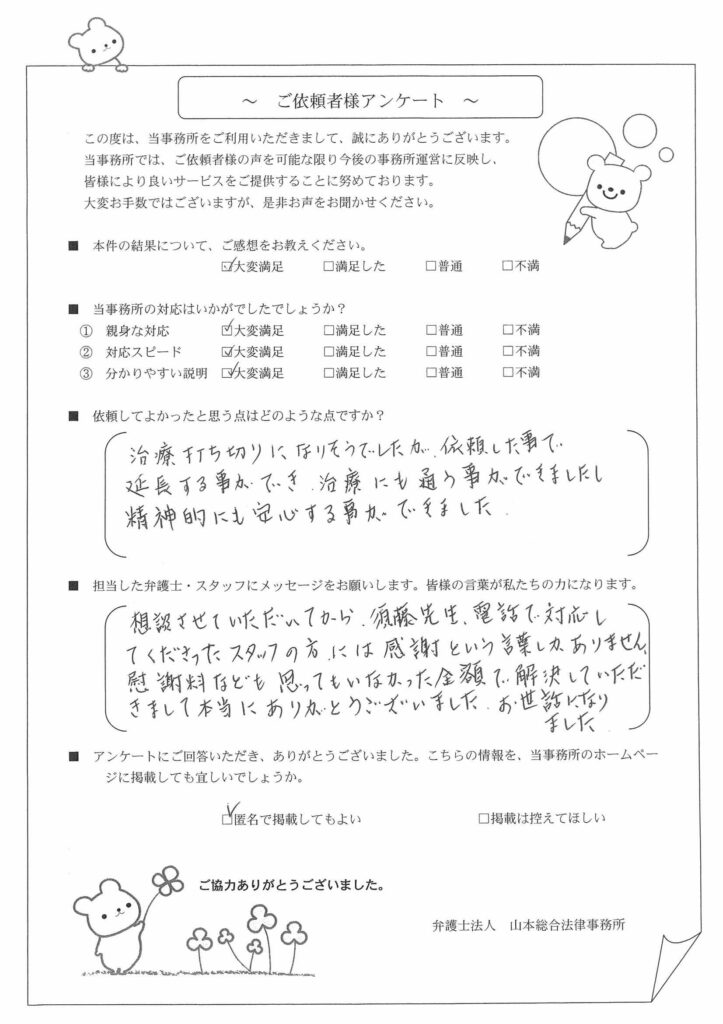 ～ ご依頼者様アンケート ～
この度は、当事務所をご利用いただきまして、誠にありがとうございます。
当事務所では、ご依頼者様の声を可能な限り今後の事務所運営に反映し、
皆様により良いサービスをご提供することに努めております。
大変お手数ではございますが、是非お声をお聞かせください。
■ 本件の結果について、ご感想をお教えください。
☑大変満足 □満足した □普通 □不満
■ 当事務所の対応はいかがでしたでしょうか？
① 親身な対応 ☑大変満足 □満足した □普通 □不満
② 対応スピード ☑大変満足 □満足した □普通 □不満
③ 分かりやすい説明 ☑大変満足 □満足した □普通 □不満
■ 依頼してよかったと思う点はどのような点ですか？
治療打ち切りになりそうでしたが、依頼した事で
延長する事ができ、治療にも通う事ができましたし
精神的にも安心する事ができました。
■ 担当した弁護士・スタッフにメッセージをお願いします。皆様の言葉が私たちの力になります。
想談させていただいてから、須藤先生、電話で対応し
てくださったスタッフの方には感謝という言葉しかありません。
慰謝料なども思ってもいなかった金額で解決していただ
きまして本当にありがとうございました。お世話になり
ました
■ アンケートにご回答いただき、ありがとうございました。こちらの情報を、当事務所のホームペー
ジに掲載しても宜しいでしょうか。
☑匿名で掲載してもよい □掲載は控えてほしい
ご協力ありがとうございました。
弁護士法人 山本総合法律事務所